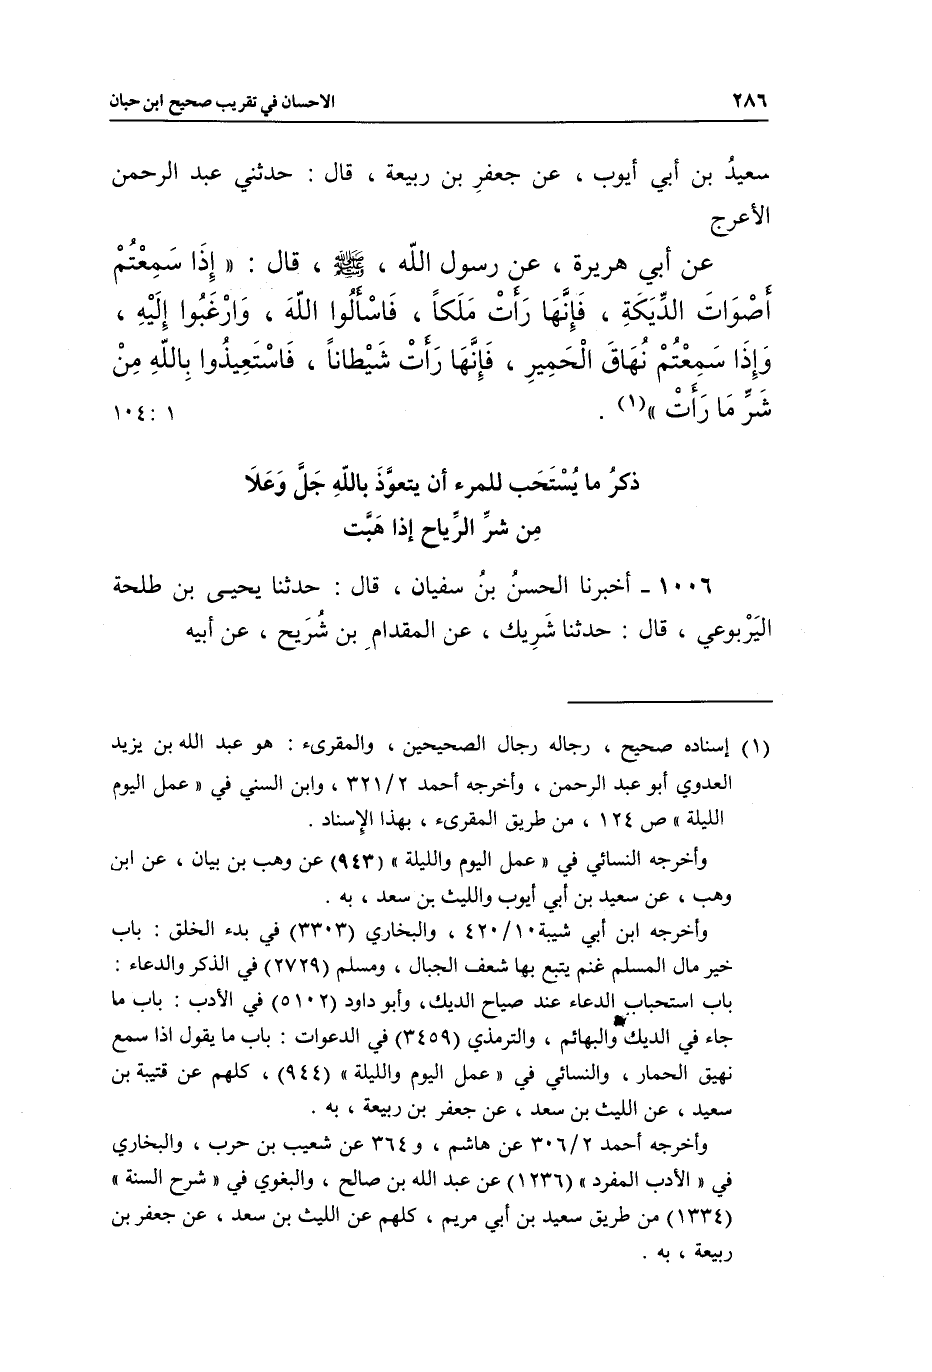 ٢٨٦ الاحسان في تقريب صحيح ابن حبان
سعيدُ بن أبي أيوب ، عن جعفرِ بن ربيعة ، قال : حدثني عبد الرحمن
الأعرج
عن أبي هريرة ، عن رسول اللّه ، ﷺ ، قال : « إِذَا سَمِعْتُمْ
أَصْوَاتَ الدِّيَكَةِ ، فَإِنَّهَا رَأَتْ مَلَكاً ، فَاسْأَلُوا اللّهَ ، وَارْغَبُوا إِلَيْهِ ،
وَإِذَا سَمِعْتُمْ نُهَاقَ الْحَمِيرِ ، فَإِنَّهَا رَأَتْ شَيْطاناً ، فَاسْتَعِيذُوا بِاللّهِ مِنْ
شَرِّ مَا رَأَتْ »(١) . ١ : ١٠٤
ذكرُ ما يُسْتَحَب للمرء أن يتعوَّذَ باللّهِ جَلَّ وَعَلَا
مِن شرِّ الرِّياح إذا هَبَّت
١٠٠٦ ـ أخبرنا الحسنُ بنُ سفيان ، قال : حدثنا يحيـى بن طلحة
اليَرْبوعي ، قال : حدثنا شَرِيك ، عن المقدامِ بن شُرَيح ، عن أبيه
(١) إسناده صحيح ، رجاله رجال الصحيحين ، والمقرىء : هو عبد الله بن يزيد
العدوي أبو عبد الرحمن ، وأخرجه أحمد ٣٢١/٢ ، وابن السني في « عمل اليوم
الليلة » ص ١٢٤ ، من طريق المقرىء ، بهذا الإسناد .
وأخرجه النسائي في « عمل اليوم والليلة » (٩٤٣) عن وهب بن بيان ، عن ابن
وهب ، عن سعيد بن أبي أيوب والليث بن سعد ، به .
وأخرجه ابن أبي شيبة ٤٢٠/١٠ ، والبخاري (٣٣٠٣) في بدء الخلق : باب
خير مال المسلم غنم يتبع بها شعف الجبال ، ومسلم (٢٧٢٩) في الذكر والدعاء :
باب استحباب الدعاء عند صياح الديك، وأبو داود (٥١٠٢) في الأدب : باب ما
جاء في الديك والبهائم ، والترمذي (٣٤٥٩) في الدعوات : باب ما يقول اذا سمع
نهيق الحمار ، والنسائي في « عمل اليوم والليلة » (٩٤٤) ، كلهم عن قتيبة بن
سعيد ، عن الليث بن سعد ، عن جعفر بن ربيعة ، به .
وأخرجه أحمد ٣٠٦/٢ عن هاشم ، و ٣٦٤ عن شعيب بن حرب ، والبخاري
في « الأدب المفرد » (١٢٣٦) عن عبد الله بن صالح ، والبغوي في « شرح السنة »
(١٣٣٤) من طريق سعيد بن أبي مريم ، كلهم عن الليث بن سعد ، عن جعفر بن
ربيعة ، به .